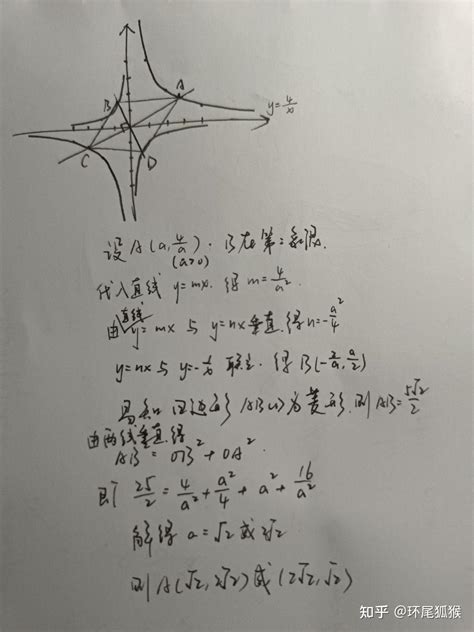 A
B
y=4/x
C
D
设 A(a, 4/a). B在第二象限.
(a>0)
代入直线 y=mx. 得 m=4/a².
由直线 y=mx 与 y=nx垂直. 得 n=-a²/4
y=nx 与 y=-1/x 联立. 得 B(-2/a, a/2)
易知 四边形 ABCD为菱形. 则 AB=5√2/2
由两线垂直得
AB²=OB²+OA².
即 25/2=4/a²+a²/4+a²+16/a²
解得 a=√2 或 2√2
则 A(√2, 2√2) 或 (2√2, √2)
知乎 @环尾狐猴